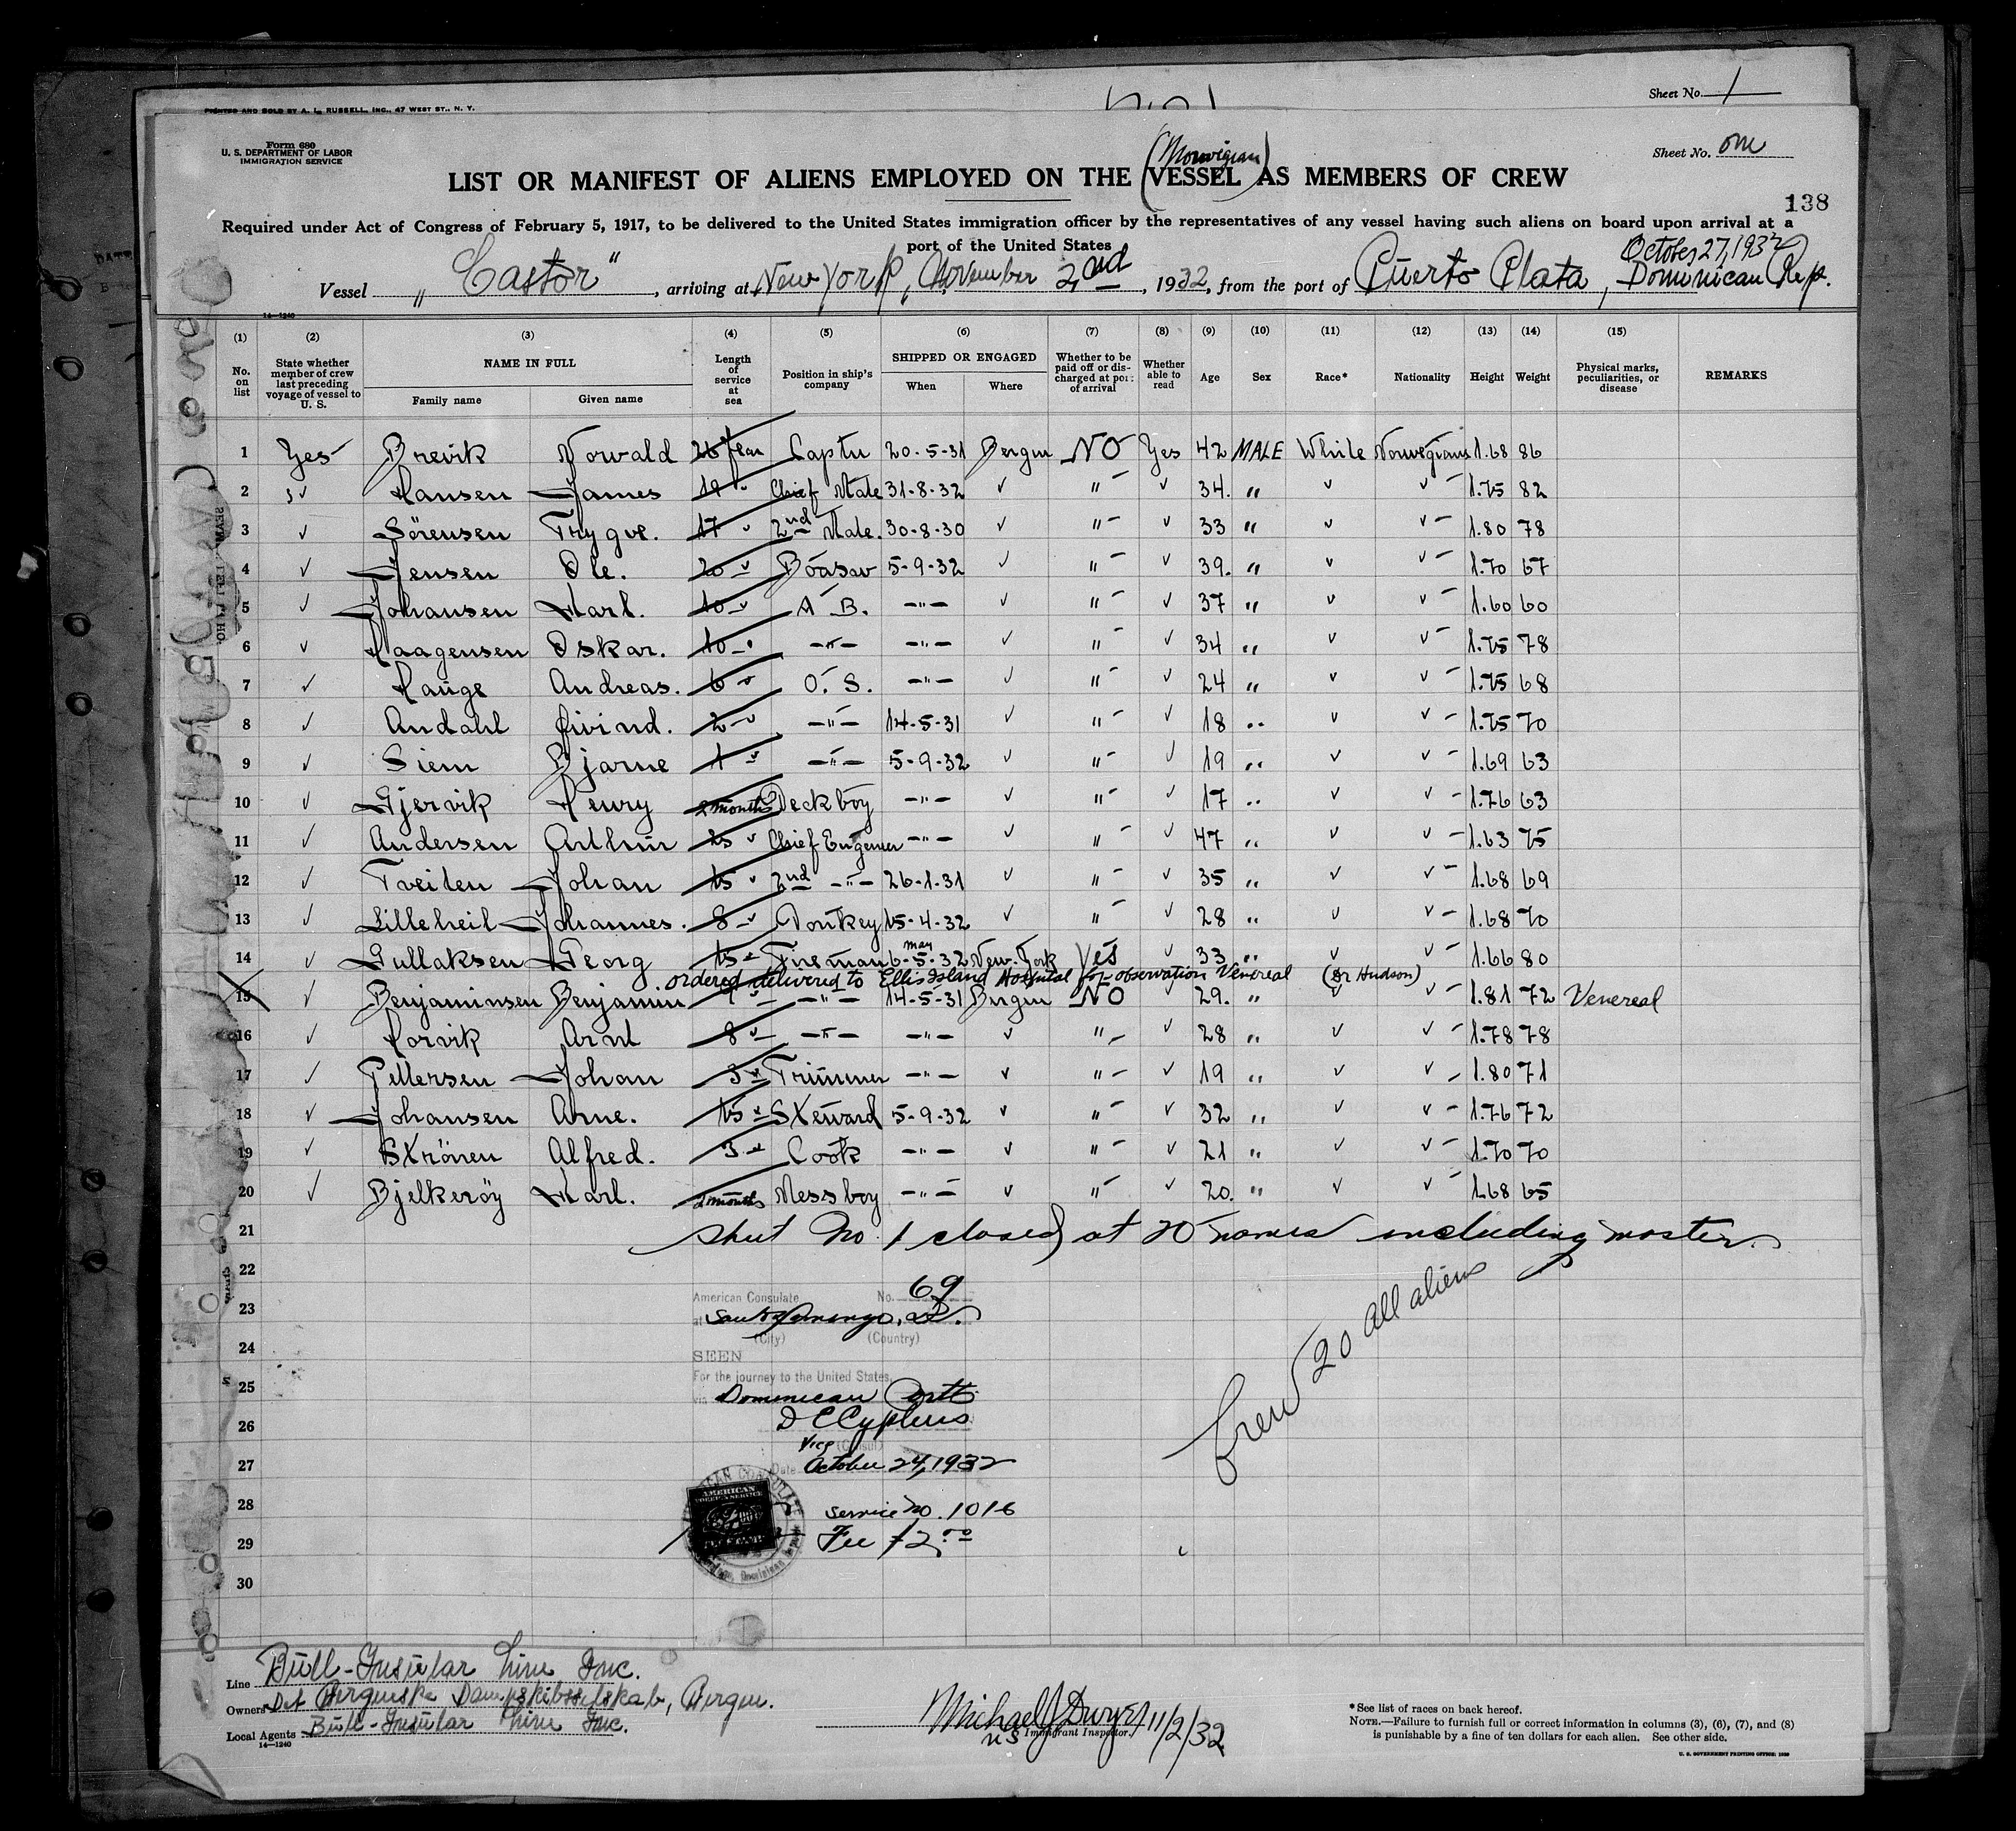 PRINTED AND SOLD BY A. L. RUSSELL, INC., 47 WEST ST., N. Y.
Sheet No. 1
Form 680
U. S. DEPARTMENT OF LABOR
IMMIGRATION SERVICE
Sheet No. one
(Norwegian)
LIST OR MANIFEST OF ALIENS EMPLOYED ON THE VESSEL AS MEMBERS OF CREW
138
Required under Act of Congress of February 5, 1917, to be delivered to the United States immigration officer by the representatives of any vessel having such aliens on board upon arrival at a
port of the United States
October 27, 1932
Vessel "Castor", arriving at New York, November 2nd, 1932, from the port of Puerto Plata, Dominican Rep.
14—1240
(1) (2) (3) (4) (5) (6) (7) (8) (9) (10) (11) (12) (13) (14) (15)
No. on list
State whether member of crew last preceding voyage of vessel to U. S.
NAME IN FULL
Family name Given name
Length of service at sea
Position in ship's company
SHIPPED OR ENGAGED
When Where
Whether to be paid off or discharged at port of arrival
Whether able to read
Age Sex Race* Nationality Height Weight
Physical marks, peculiarities, or disease
REMARKS
1 Yes Brevik Norvald 26 Year Captn 20-5-31 Bergen NO Yes 42 MALE White Norwegians 1.68 86
2 v Hansen James 19 v Chief Mate 31-8-32 v " v 34. " v v 1.75 82
3 v Sörensen Trygve. 17 v 2nd Mate. 30-8-30 v " v 33 " v v 1.80 78
4 v Jensen Ole. 20 v 5-9-32 v " v 39. " v v 1.70 67
5 v Johansen Karl. 10 v A B. -"- v " v 37 " v v 1.60 60
6 v Haagensen Oskar. 10 -"- -"- v " v 34 " v v 1.75 78
7 v Hauge Andreas. 6 v O. S. -"- v " v 24 " v v 1.75 68
8 v Andahl Øivind. 2 v -"- 14-5-31 v " v 18 " v v 1.75 70
9 v Siem Bjarne 1 v -"- 5-9-32 v " v 19 " v v 1.69 63
10 v Gjervik Henry 2 months Deckboy -"- v " v 17 " v v 1.76 63
11 v Andersen Arthur 25 v Chief Engeneer -"- v " v 47 " v v 1.63 75
12 v Tveiten Johan 15 v 2nd -"- 26-1-31 v " v 35 " v v 1.68 69
13 v Lilleheil Johannes. 8 v Donkey 15-4-32 v " v 28 " v v 1.68 70
14 v Gullaksen Georg 15 v Fireman 6-5-32 may New-York Yes v 33 " v v 1.66 80
ordered delivered to Ellis Island Hospital for observation Venereal (Dr Hudson)
15 v Benjaminsen Benjamin -"- 14-5-31 Bergen NO v 29. " v v 1.81 72 Venereal
16 v Horvik Arnt 8 v -"- -"- v " v 28 " v v 1.78 78
17 v Pettersen Johan 3 v Trimmer -"- v " v 19 " v v 1.80 71
18 v Johansen Arne. 15 v Steward 5-9-32 v " v 32 " v v 1.76 72
19 v Strönen Alfred. 3 v Cook -"- v " v 21 " v v 1.70 70
20 v Bjelkeröy Karl. 2 months Messboy -"- v " v 20. " v v 1.68 65
21 Sheet No. 1 closed at 20 names including master.
22
23
24
25
26
27
28
29
30
American Consulate No. 69
at Santo Domingo, D.R.
(City) (Country)
SEEN
For the journey to the United States,
via Dominican Ports
Vice (Consul)
Date October 24, 1932
AMERICAN
FOREIGN SERVICE
Service No. 1016
Fee $2.00
Crew 20 all aliens
Line Bull-Insular Line Inc.
Owners Det Bergenske Dampskibsselskab, Bergen.
Local Agents Bull-Insular Line Inc.
14—1240
Michael J Dwyer 11/2/32
US Immigrant Inspector.
*See list of races on back hereof.
NOTE.—Failure to furnish full or correct information in columns (3), (6), (7), and (8)
is punishable by a fine of ten dollars for each alien. See other side.
U. S. GOVERNMENT PRINTING OFFICE: 1930